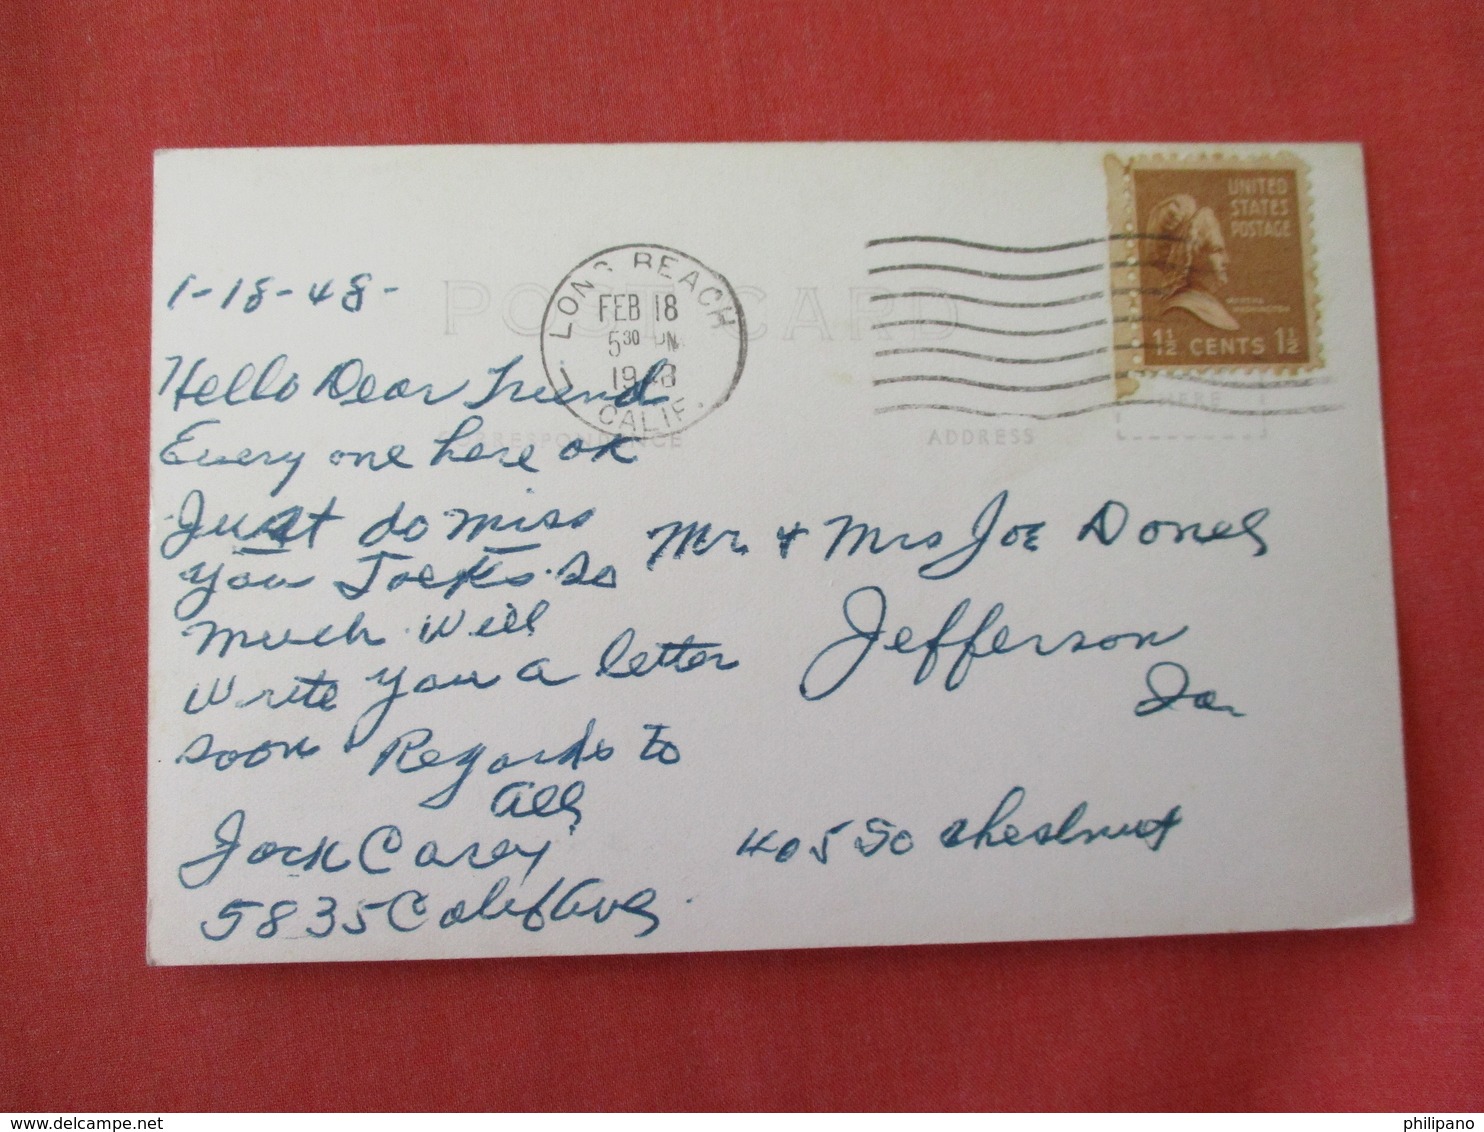 UNITED
STATES
POSTAGE
1½ CENTS 1½
LONG BEACH
FEB 18
5 30 PM
1948
CALIF.
POST CARD
CORRESPONDENCE
ADDRESS
HERE
1-18-48-
Hello Dear Friend
Every one here ok
Just do miss
you so
much. Will
write you a letter
soon Regards to
all
Jack Carey
5835 Calif Ave
Mr. & Mrs Joe
Jefferson
Ia.
405 So Chestnut
philipano